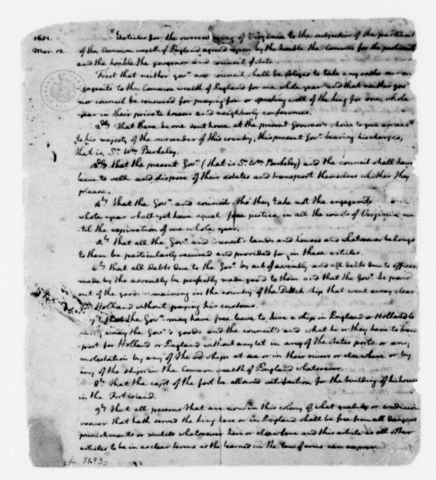 1651. Articles for the surrendring of Virginia to the subjection of the parliament
Mar. 12. of the Common wealth of England agreed upon by the honble the Commrs for the parliament
and the honble the governor and council of state.
First that neither govr nor council shall be obliged to take any oath or en-
gagement to the Common wealth of England for one whole year and that neither govr
nor council be censured for praying for or speaking well of the king for one whole
year in their private houses and neighborly conference.
2dly that there be one sent home at the present Governor's choice to give account
to his majesty of the surrender of this country, the present Govr bearing his charges,
that is, Sr. Wm Berkeley.
3dly that the present Govr (that is Sr. Wm Berkeley) and the council shall have
leave to sell and dispose of their estates and transport themselves whether they
please.
4ly That the Govr and council tho' they take not the engagemt a
whole year shall yet have equal & free justice in all the courts of Virginia un
til the expiration of one whole year.
5ly that all the Govr and council's lands and houses and whatsoever belongs
to them be particularly secured and provided for in these articles.
6ly that all debts due to the Govr by act of assembly and all debts due to officers
made by the assembly be perfectly made good to them and that the Govr be paid
out of the goods remaining in the country of the Dutch ship that went away clear
Holland without paying his customs.
7. that the Govr may have free leave to hire a ship in England or Holland to
away the Govr's goods and the council's and what he or they have to trans
port for Holland or England without any let in any of the states ports or any
molestation by any of the sd ships at sea or in their rivers or elsewhere or by
any of the ships in the Common wealth of England whatsoever.
8ly that the capt of the fort be allowed satisfaction for the building of his house
in the Fort island.
9ly that all persons that are now in this colony of what quality or condition
soever that hath served the king here or in England shall be free from all dangers
punishments or mulcts whatsoever here or elsewhere and this article as all other
articles to be in as clear terms as the learned in the law of arms can express.